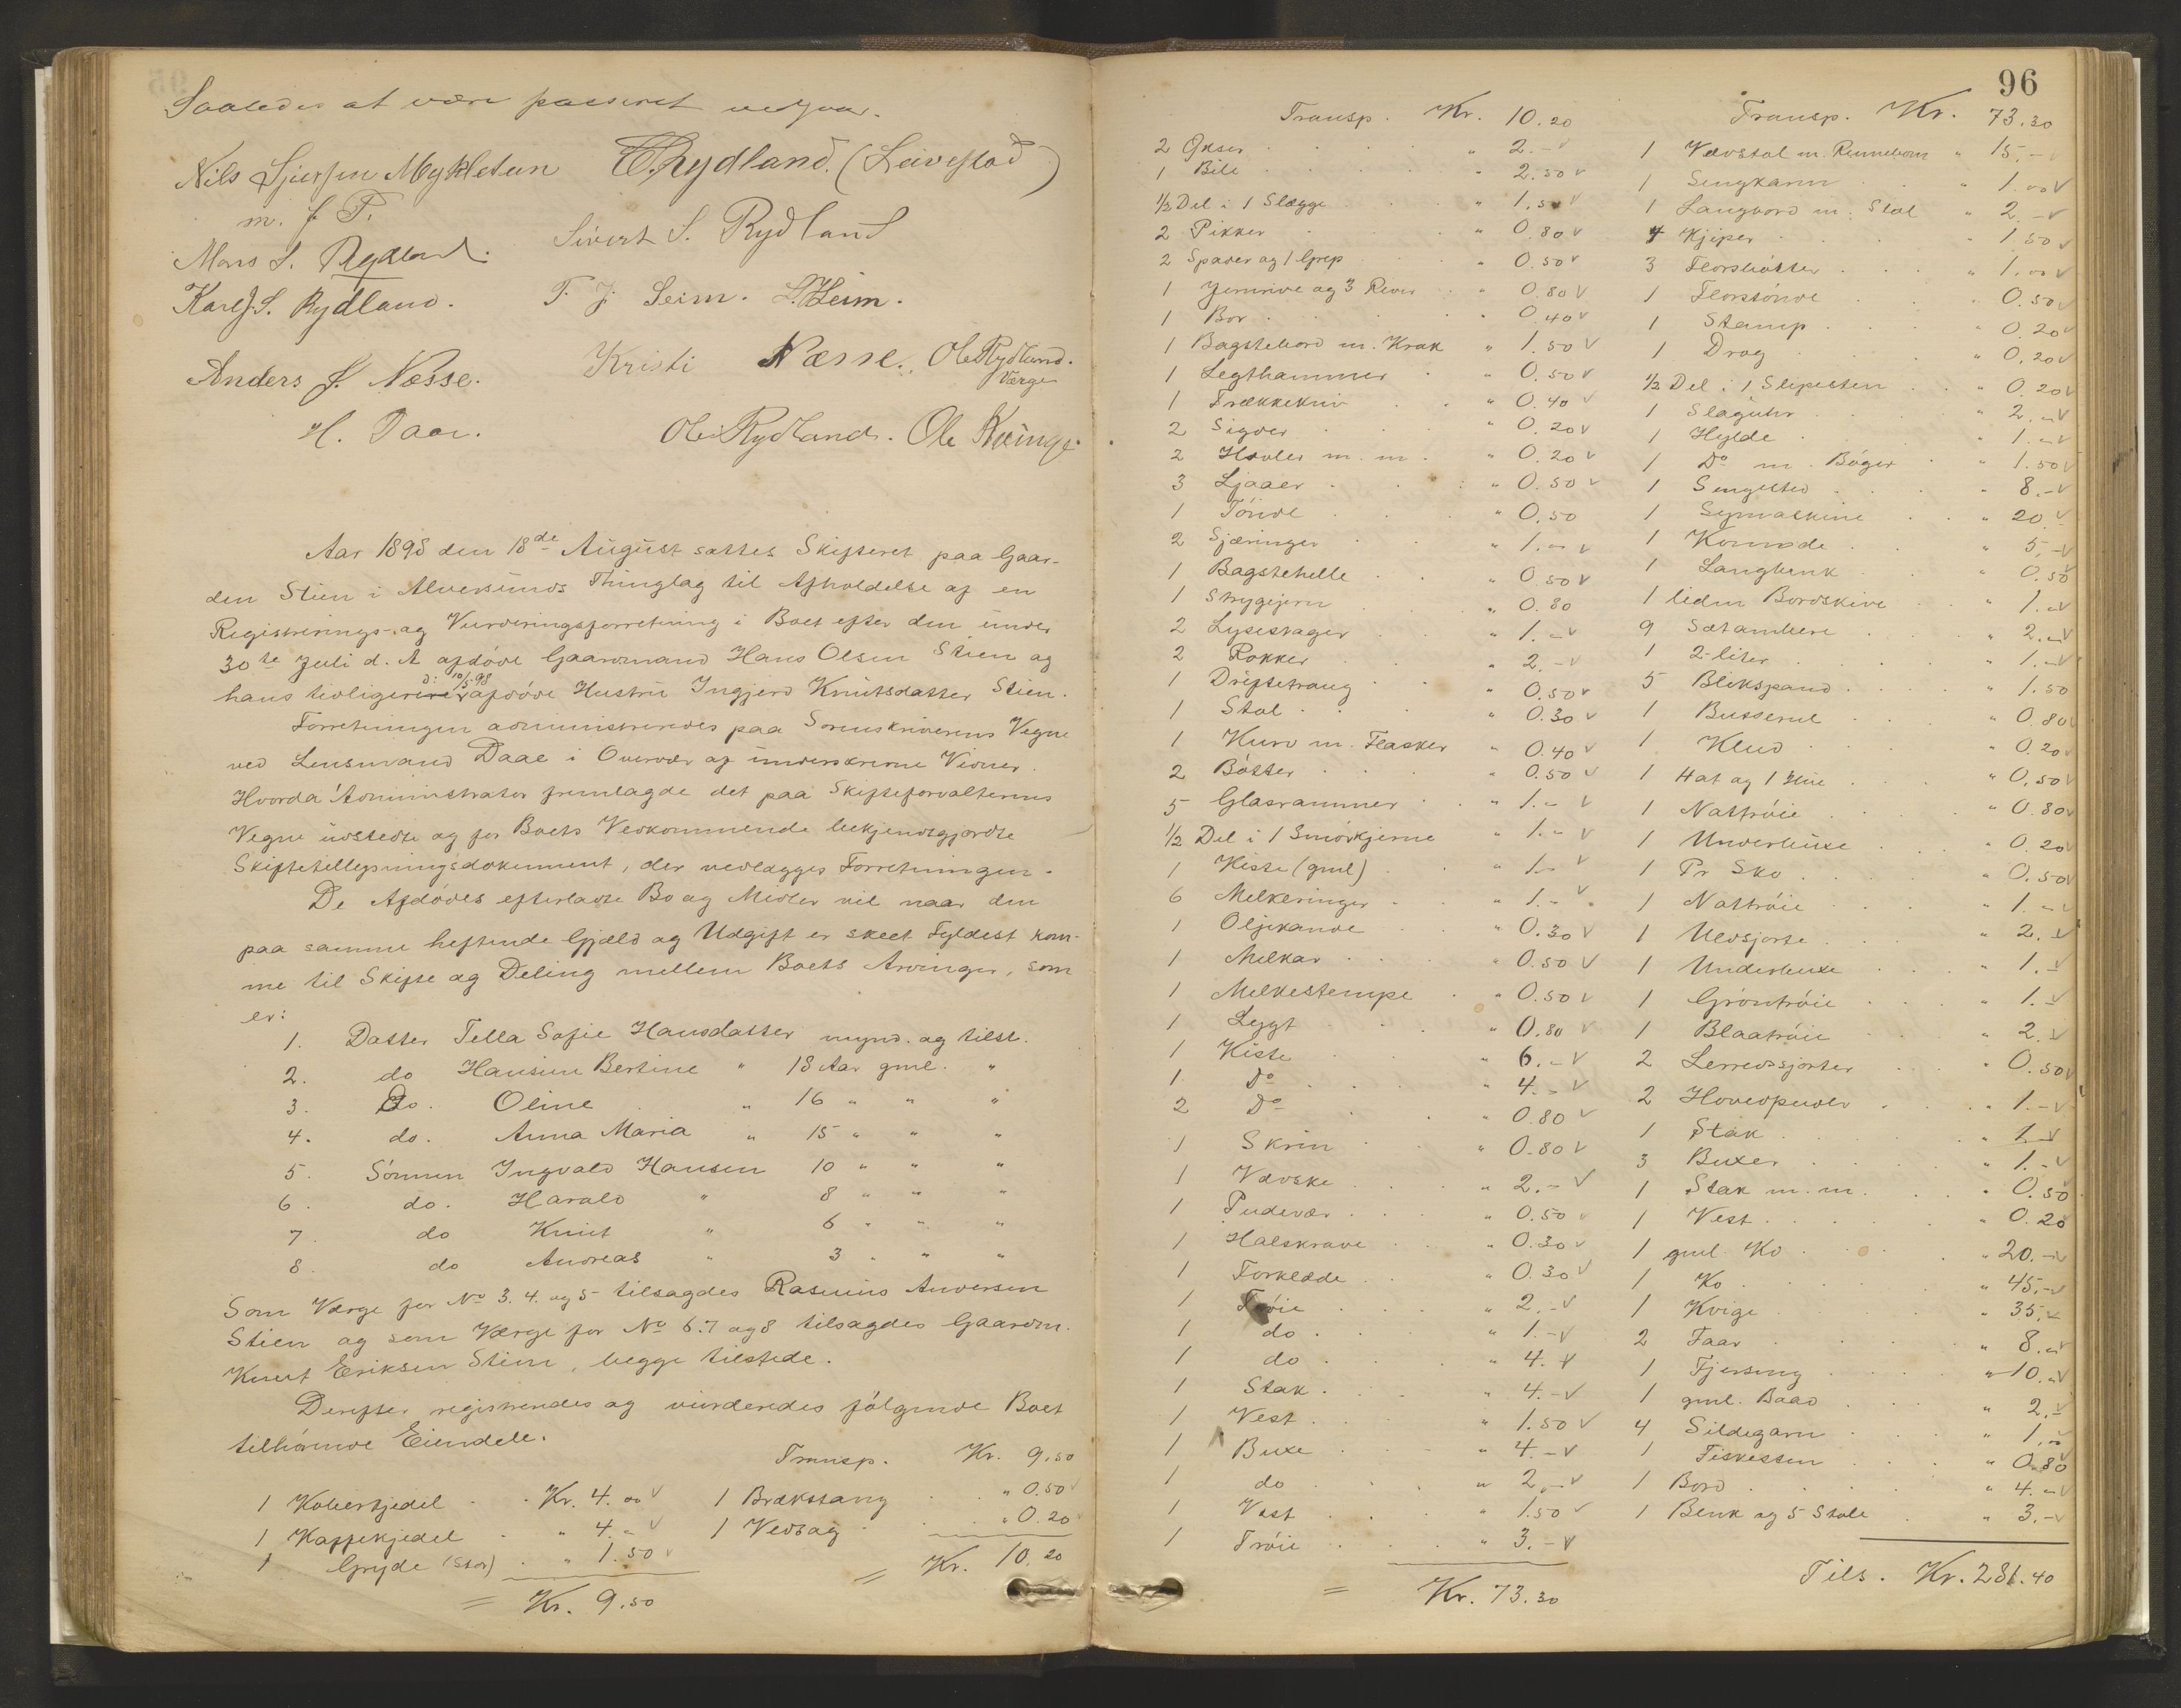 Saaledes at være passeret vedgaar.
Nils Sjursen Mykletun
m. f. P.
Mons S. Rydland.
Karl J. S. Rydland.
Anders J. Næsse.
H. Daae.
Rydland. (Leivestad)
Sivert S. Rydland
T. J. Seim. L. Heim.
Kristi Næsse. Ole Rydland.
Værge
Ole Rydland. Ole Kvinge
Aar 1898 den 18de August sattes Skifteret paa Gaar-
den Stien i Alversunds Thinglag til Afholdelse af en
Registrerings- og Vurderingsforretning i Boet efter den under
30te Juli d. A. afdøde Gaardmand Hans Olsen Stien og
hans tidligere d: 10/5.98 afdøde Hustru Ingjerd Knutsdatter Stien.
Forretningen administreredes paa Sorenskriverens Vegne
ved Lensmand Daae i Overvær af underskrevne Vidner.
Hvorda Administrator fremlagde det paa Skifteforvalterens
Vegne udstedte og for Boets Vedkommende bekjendtgjordte
Skiftetillysningsdokument, der vedlægges Forretningen.
De Afdødes efterladte Bo og Midler vil naar den
paa samme heftende Gjæld og Udgift er skeet Fyldest kom-
me til Skifte og Deling mellem Boets Arvinger, som
er:
1. Datter Tella Sofie Hansdatter mynd. og tilst.
2. do Hansine Bertine " 18 Aar gml. "
3. Do. Oline " 16 " " "
4. do. Anna Maria " 15 " " "
5. Sønnen Ingvald Hansen 10 " " "
6. do. Harald " 8 " " "
7. do Knut " 6 " " "
8. do Andreas " 3 " " "
Som Værge for No 3. 4. og 5 tilsagdes Rasmus Andersen
Stien og som Værge for No 6. 7 og 8 tilsagdes Gaardm.
Knut Eriksen Stien, begge tilstede.
Derefter registreredes og vurderedes følgende Boet
tilhørende Eiendele.
1 Kobberkjedel Kr. 4.00
1 Kaffekjedel " 4.-
1 Gryde (stor) " 1.50
= Kr. 9.50
Transp. Kr. 9.50
1 Brækstang " 0.50
1 Vedsag " 0.20
= Kr. 10.20
96
Transp. Kr. 10.20
2 Øxser " 2.-
1 Bile " 2.50
1/2 Del i 1 Slægge " 1.50
2 Pikker " 0.80
2 Spader og 1 Grep " 0.50
1 Jernrive og 3 River " 0.80
1 Bor " 0.40
1 Bagstebord m. Krak " 1.50
1 Legthammer " 0.50
1 Trækkekniv " 0.40
2 Sigder " 0.20
2 Høvler m. m. " 0.20
3 Ljaaer " 0.50
1 Tønde " 0.50
2 Sjæringer " 1.-
1 Bagstehelle " 0.50
1 Strygejern " 0.80
2 Lysestager " 1.-
2 Rokker " 2.-
1 Driftetraug " 0.50
1 Stol " 0.30
1 Kurv m. Flasker " 0.40
2 Bøtter " 0.50
5 Glasrammer " 1.-
1/2 Del i 1 Smørkjerne " 1.-
1 Kiste (gml) " 1.-
6 Melkeringer " 1.-
1 Oljekande " 0.30
1 Melkar " 0.50
1 Melkestempe " 0.50
1 Lygt " 0.80
1 Kiste " 6.-
1 Do " 4.-
2 Do " 0.80
1 Skrin " 0.80
1 Vadske " 2.-
1 Pudevar " 0.50
1 Halskrave " 0.30
1 Forklæde " 0.30
1 Trøie " 2.-
1 do " 1.-
1 do " 4.-
1 Stak " 4.-
1 Vest " 1.50
1 Buxe " 4.-
1 do " 2.-
1 Vest " 1.50
1 Trøie " 3.-
= Kr. 73.30
Transp. Kr. 73.30
1 Vævstol m. Rennebom " 15.-
1 Sengkarm " 1.00
1 Langbord m. Stol " 2.-
4 Kjiper " 1.50
3 Florsbøtter " 1.00
1 Florstønde " 0.50
1 Stamp " 0.20
1 Drag " 0.20
1/2 Del i 1 Slipesten " 0.20
1 Slaguhr " 2.-
1 Hylde " 1.-
1 Do m. Bøger " 1.50
1 Sengsted " 8.-
1 Symaskine " 20.-
1 Komode " 5.-
1 Langbenk " 0.50
1 liden Bordskive " 1.-
9 Satambere " 2.-
1 2-liter " 1.-
5 Blikspand " 1.50
1 Busserul " 0.80
1 Klud " 0.20
1 Hat og 1 Hue " 0.50
1 Nattrøie " 0.80
1 Underbuxe " 0.20
1 Pr Sko " 0.50
1 Nattrøie " 1.-
1 Uldsjorte " 2.-
1 Underbuxe " 1.-
1 Grøntrøie " 1.-
1 Blaatrøie " 2.-
2 Lerredssjorter " 0.50
2 Hovedpuder " 1.-
1 Stak " 1.-
3 Buxer " 1.-
1 Stak m. m. " 0.50
1 Vest " 0.20
1 gml Ko " 20.-
1 Ko " 45.-
1 Kvige " 35.-
2 Faar " 8.-
1 Fjersing " 10.-
1 gml. Baad " 2.-
4 Sildegarn " 1.-
1 Fiskessen " 0.80
1 Bord " 4.-
1 Benk og 5 Stole " 3.-
Tils. Kr. 281.40